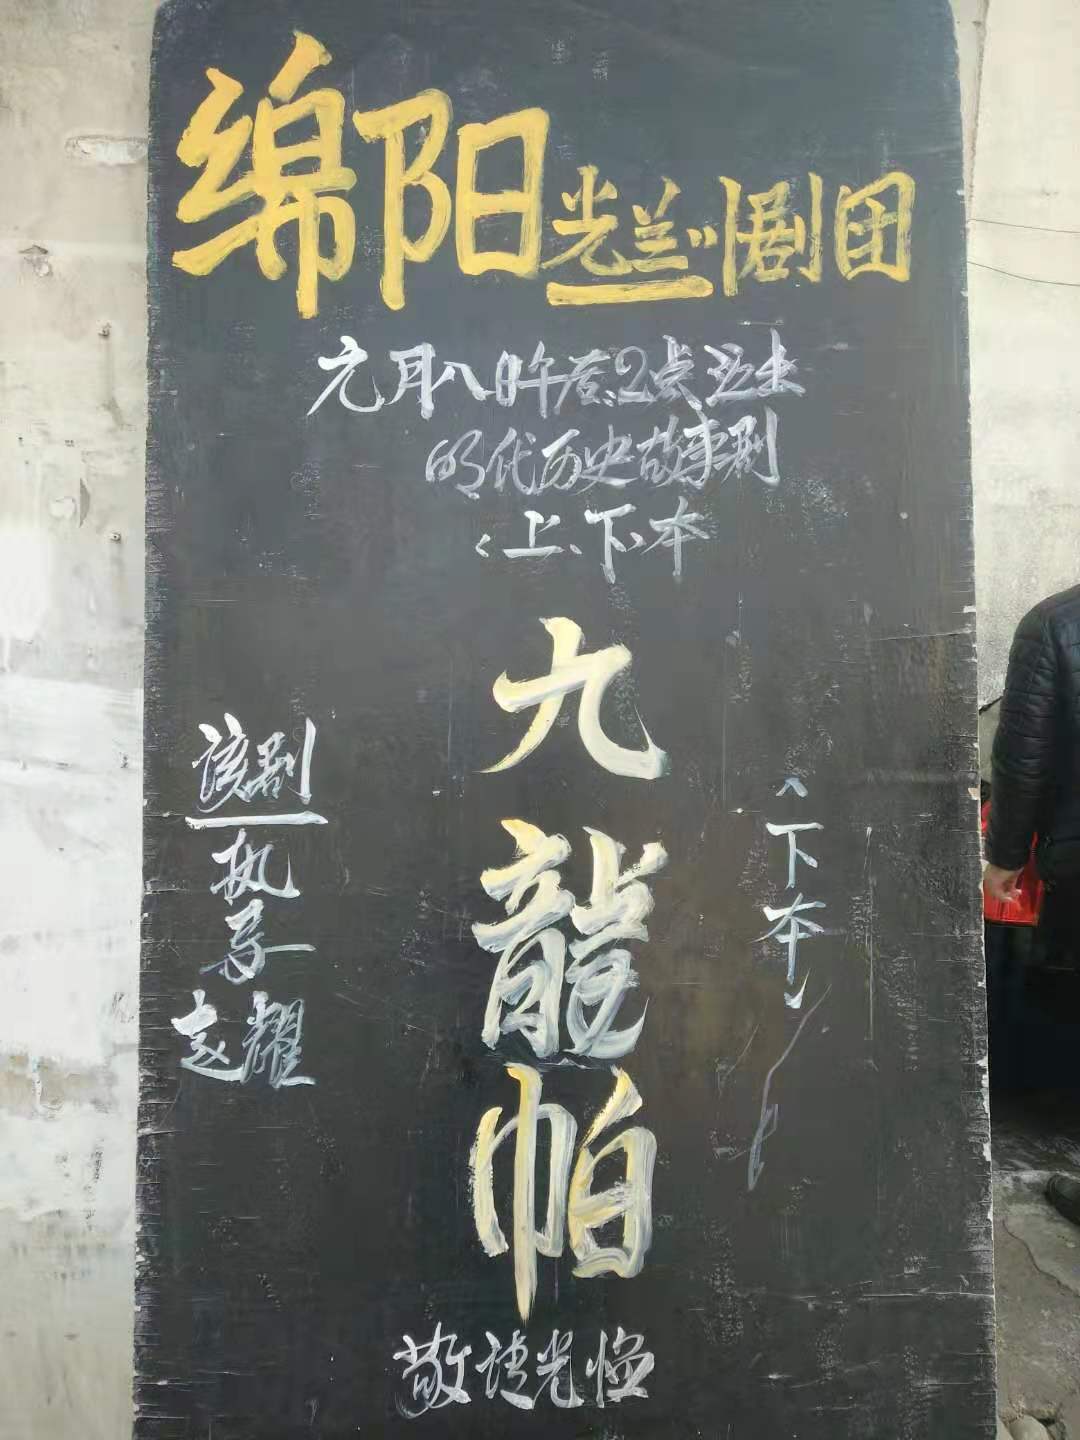 绵阳光兰川剧团
元月八日午后2点演出
明代历史故事剧
〈上、下、本
九龍帕
〈下本〉
该剧
执导
志耀
敬请光临